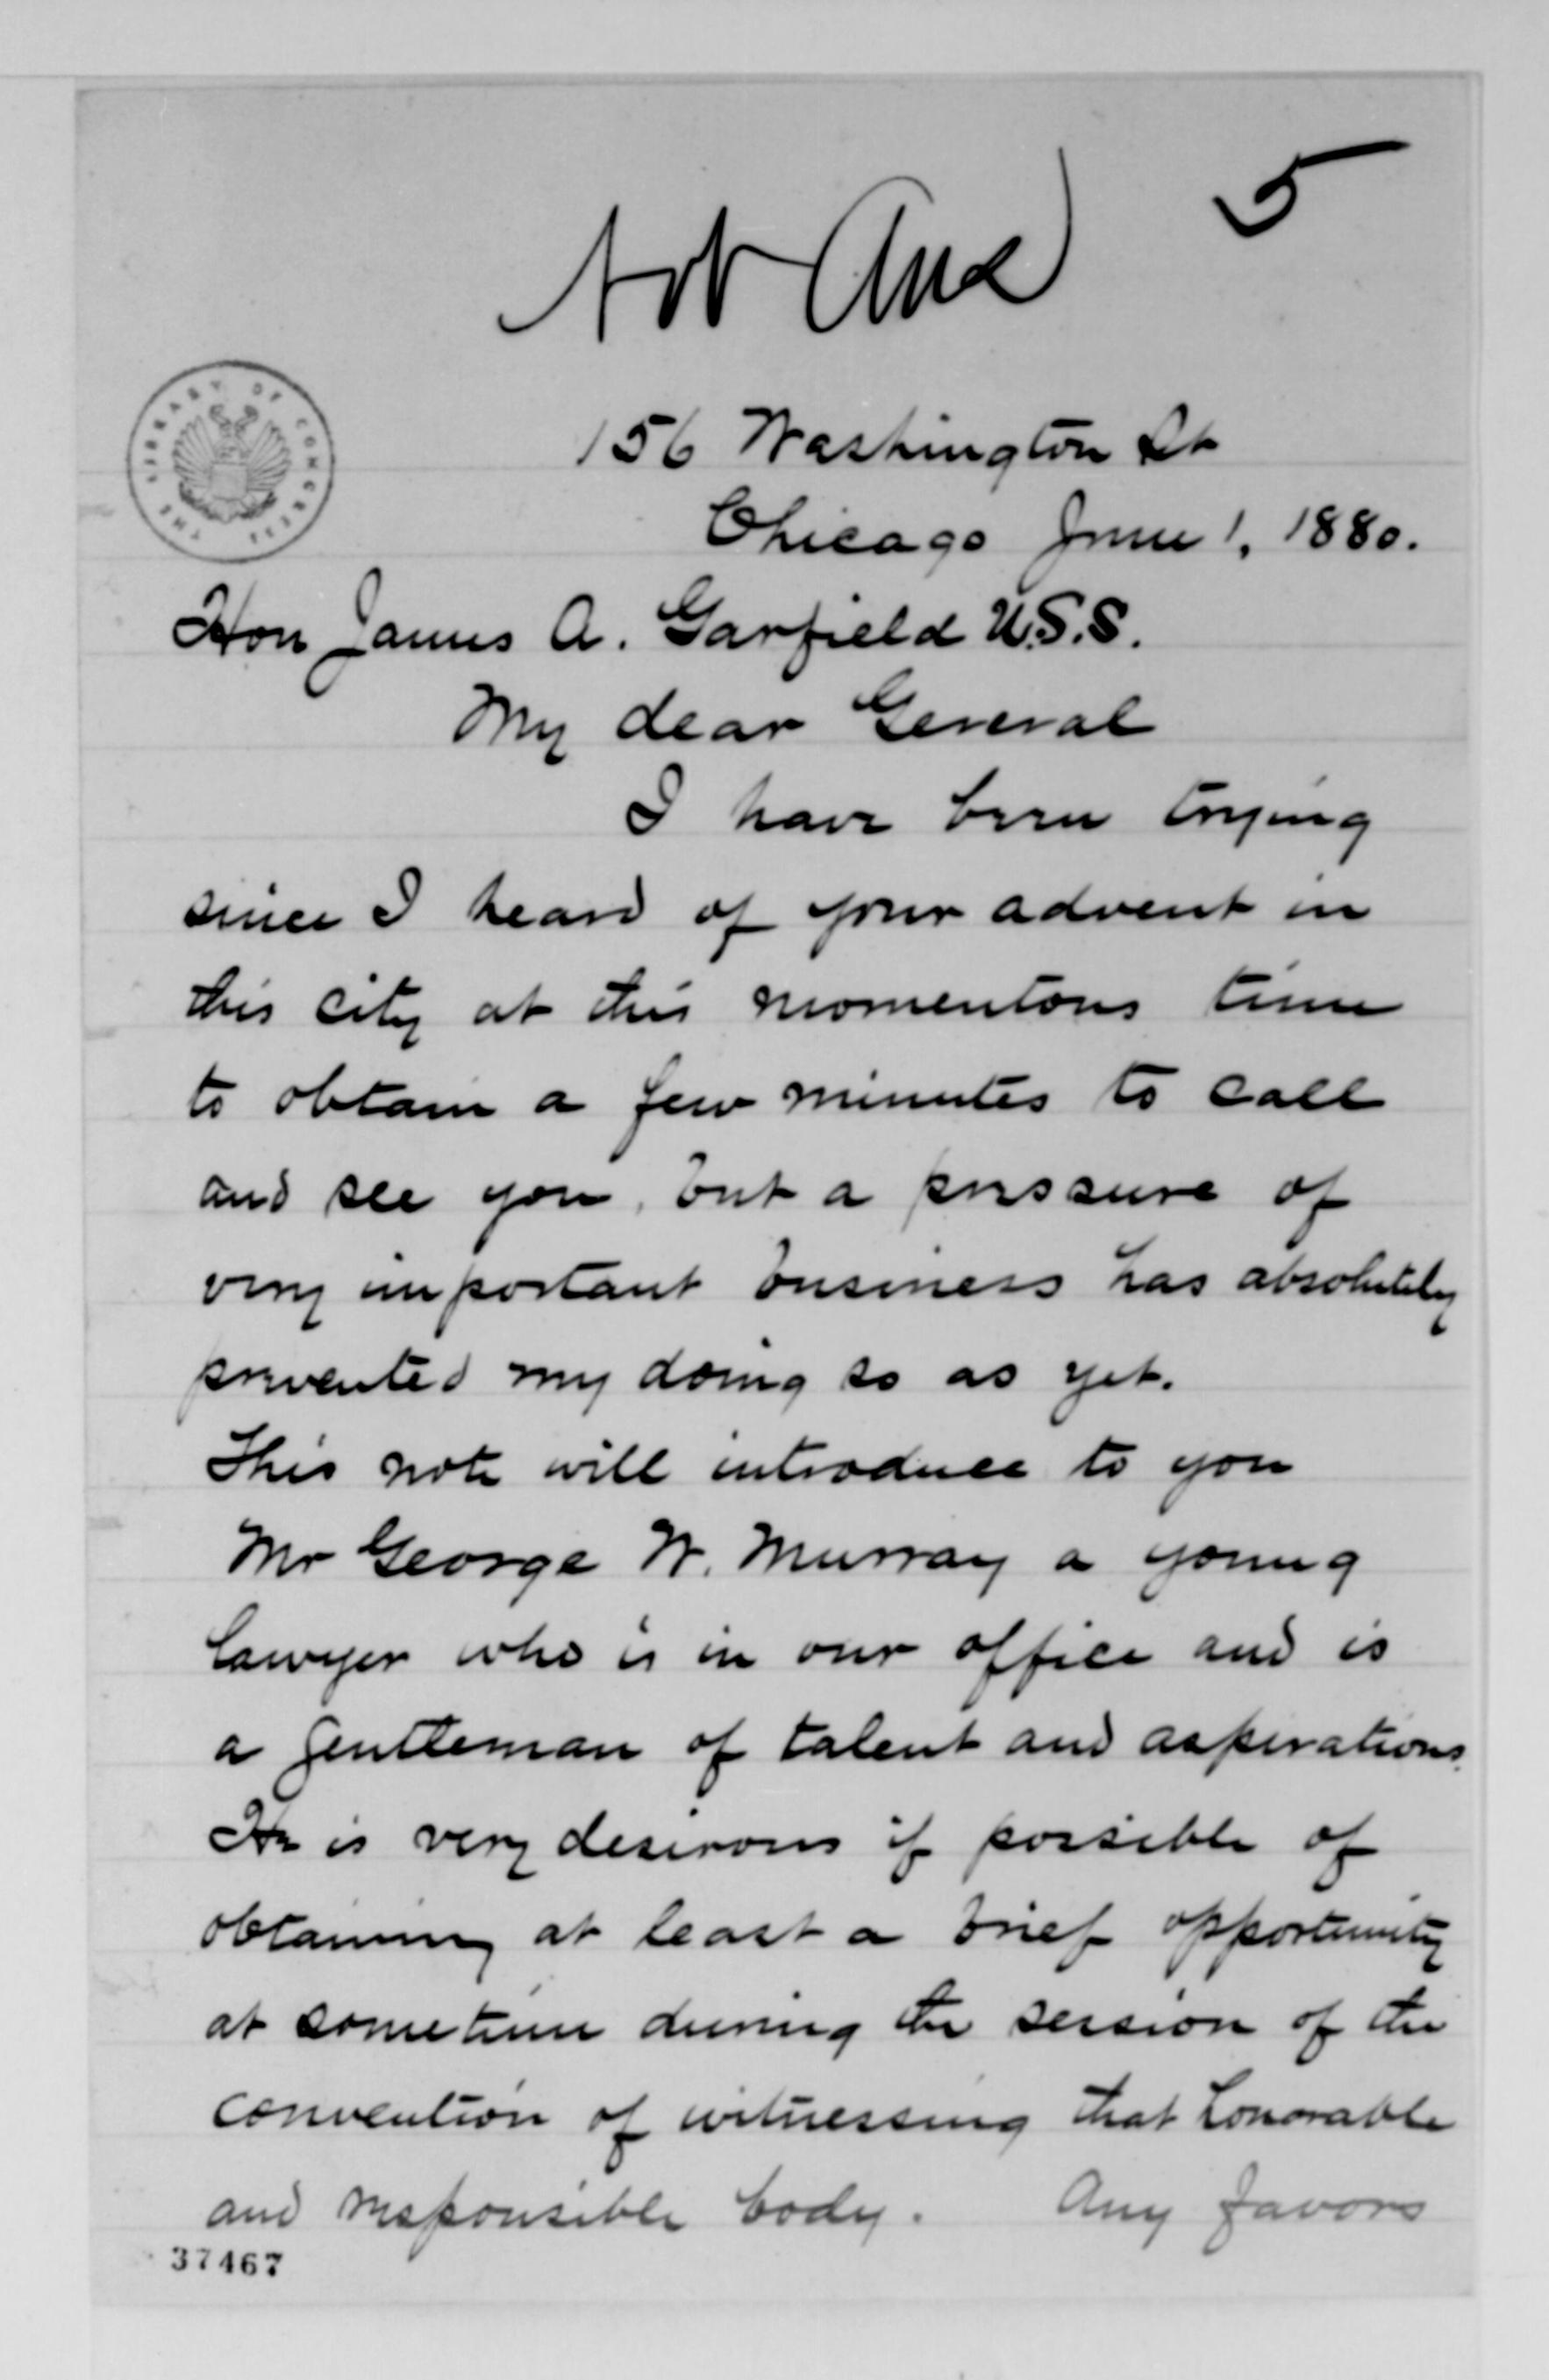 5
Not Ans
156 Washington St
Chicago June 1, 1880.
THE LIBRARY OF CONGRESS
Hon James A. Garfield U.S.S.
My dear General
I have been trying
since I heard of your advent in
this city at this momentous time
to obtain a few minutes to call
and see you, but a pressure of
very important business has absolutely
prevented my doing so as yet.
This note will introduce to you
Mr George W. Murray a young
lawyer who is in our office and is
a gentleman of talent and aspirations.
He is very desirous if possible of
obtaining at least a brief opportunity
at sometime during the session of the
convention of witnessing that honorable
and responsible body. Any favors
37467